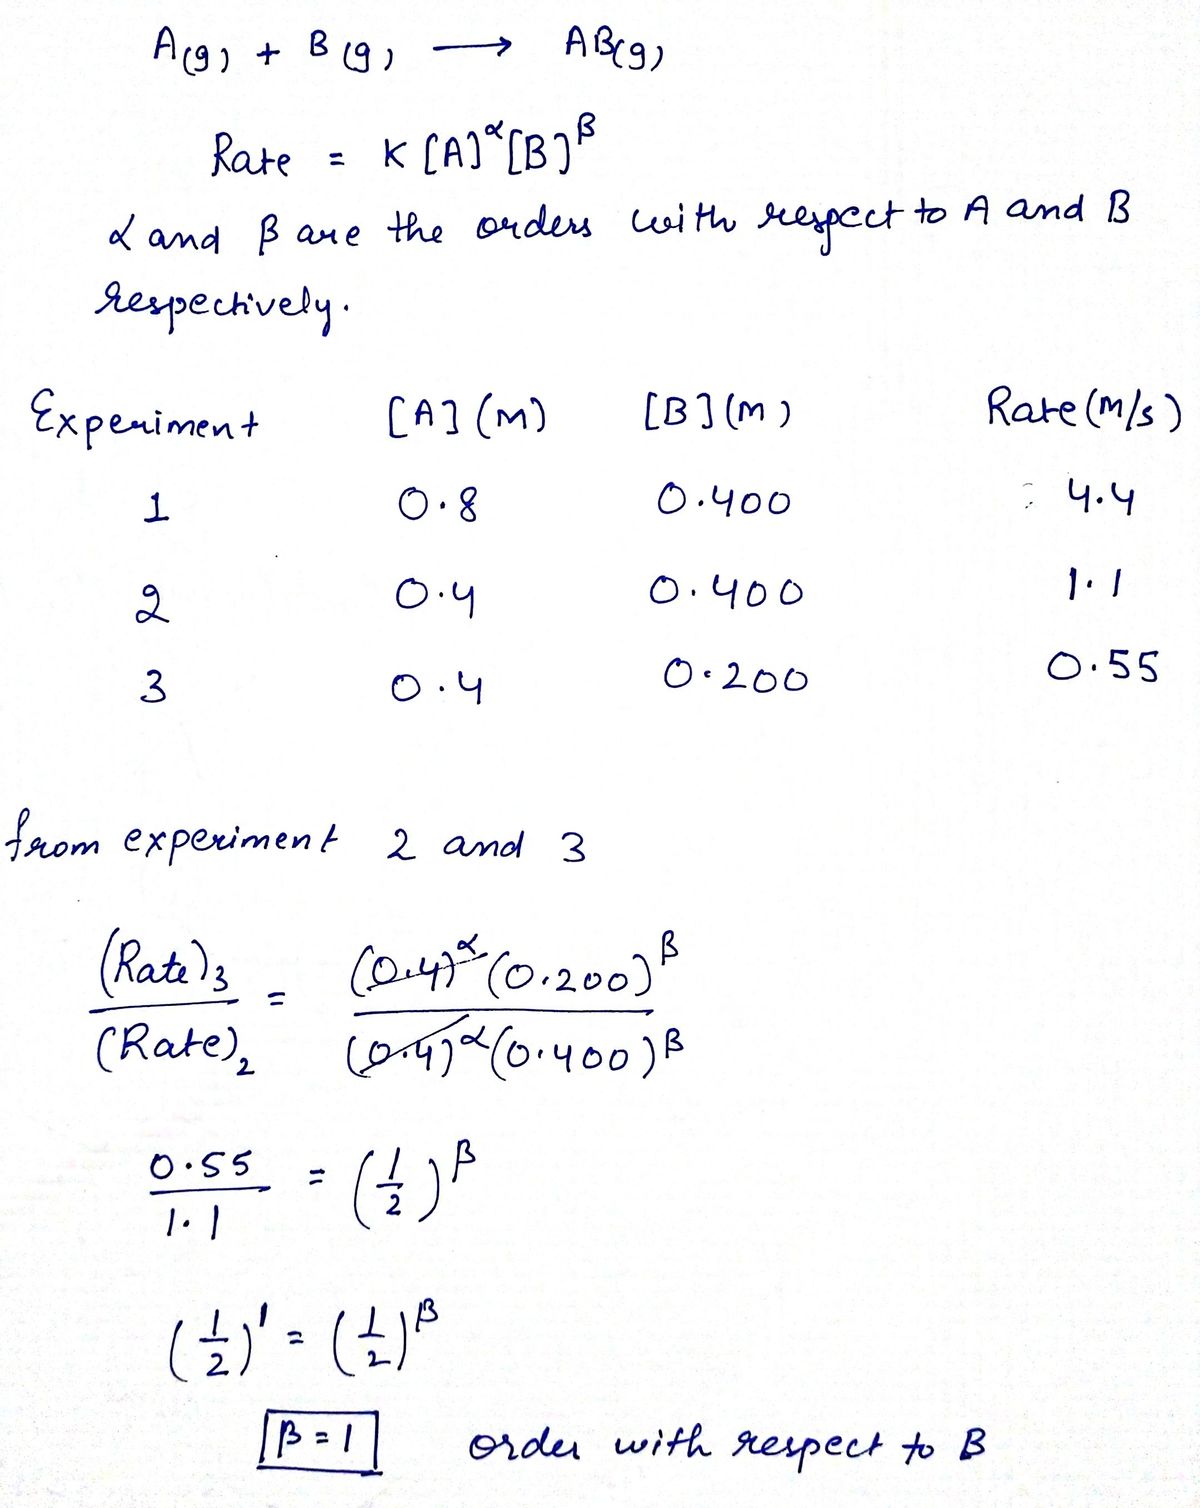 A(g) + B(g) ⟶ AB(g)
Rate = K [A]^α [B]^β
α and β are the orders with respect to A and B
respectively.
Experiment [A] (M) [B] (M) Rate (M/s)
1 0.8 0.400 4.4
2 0.4 0.400 1.1
3 0.4 0.200 0.55
from experiment 2 and 3
(Rate)₃ / (Rate)₂ = (0.4)^α (0.200)^β / (0.4)^α (0.400)^β
0.55 / 1.1 = (1/2)^β
(1/2)^1 = (1/2)^β
β = 1 order with respect to B